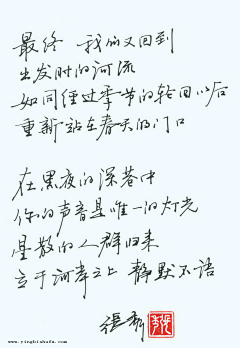 最终 我们又回到
出发时的河流
如同经过季节的轮回以后
重新站在春天的门口
在黑夜的深巷中
你的声音是唯一的灯光
星散的人群归来
立于河岸之上 静默不语
張
www.yingbishufa.com